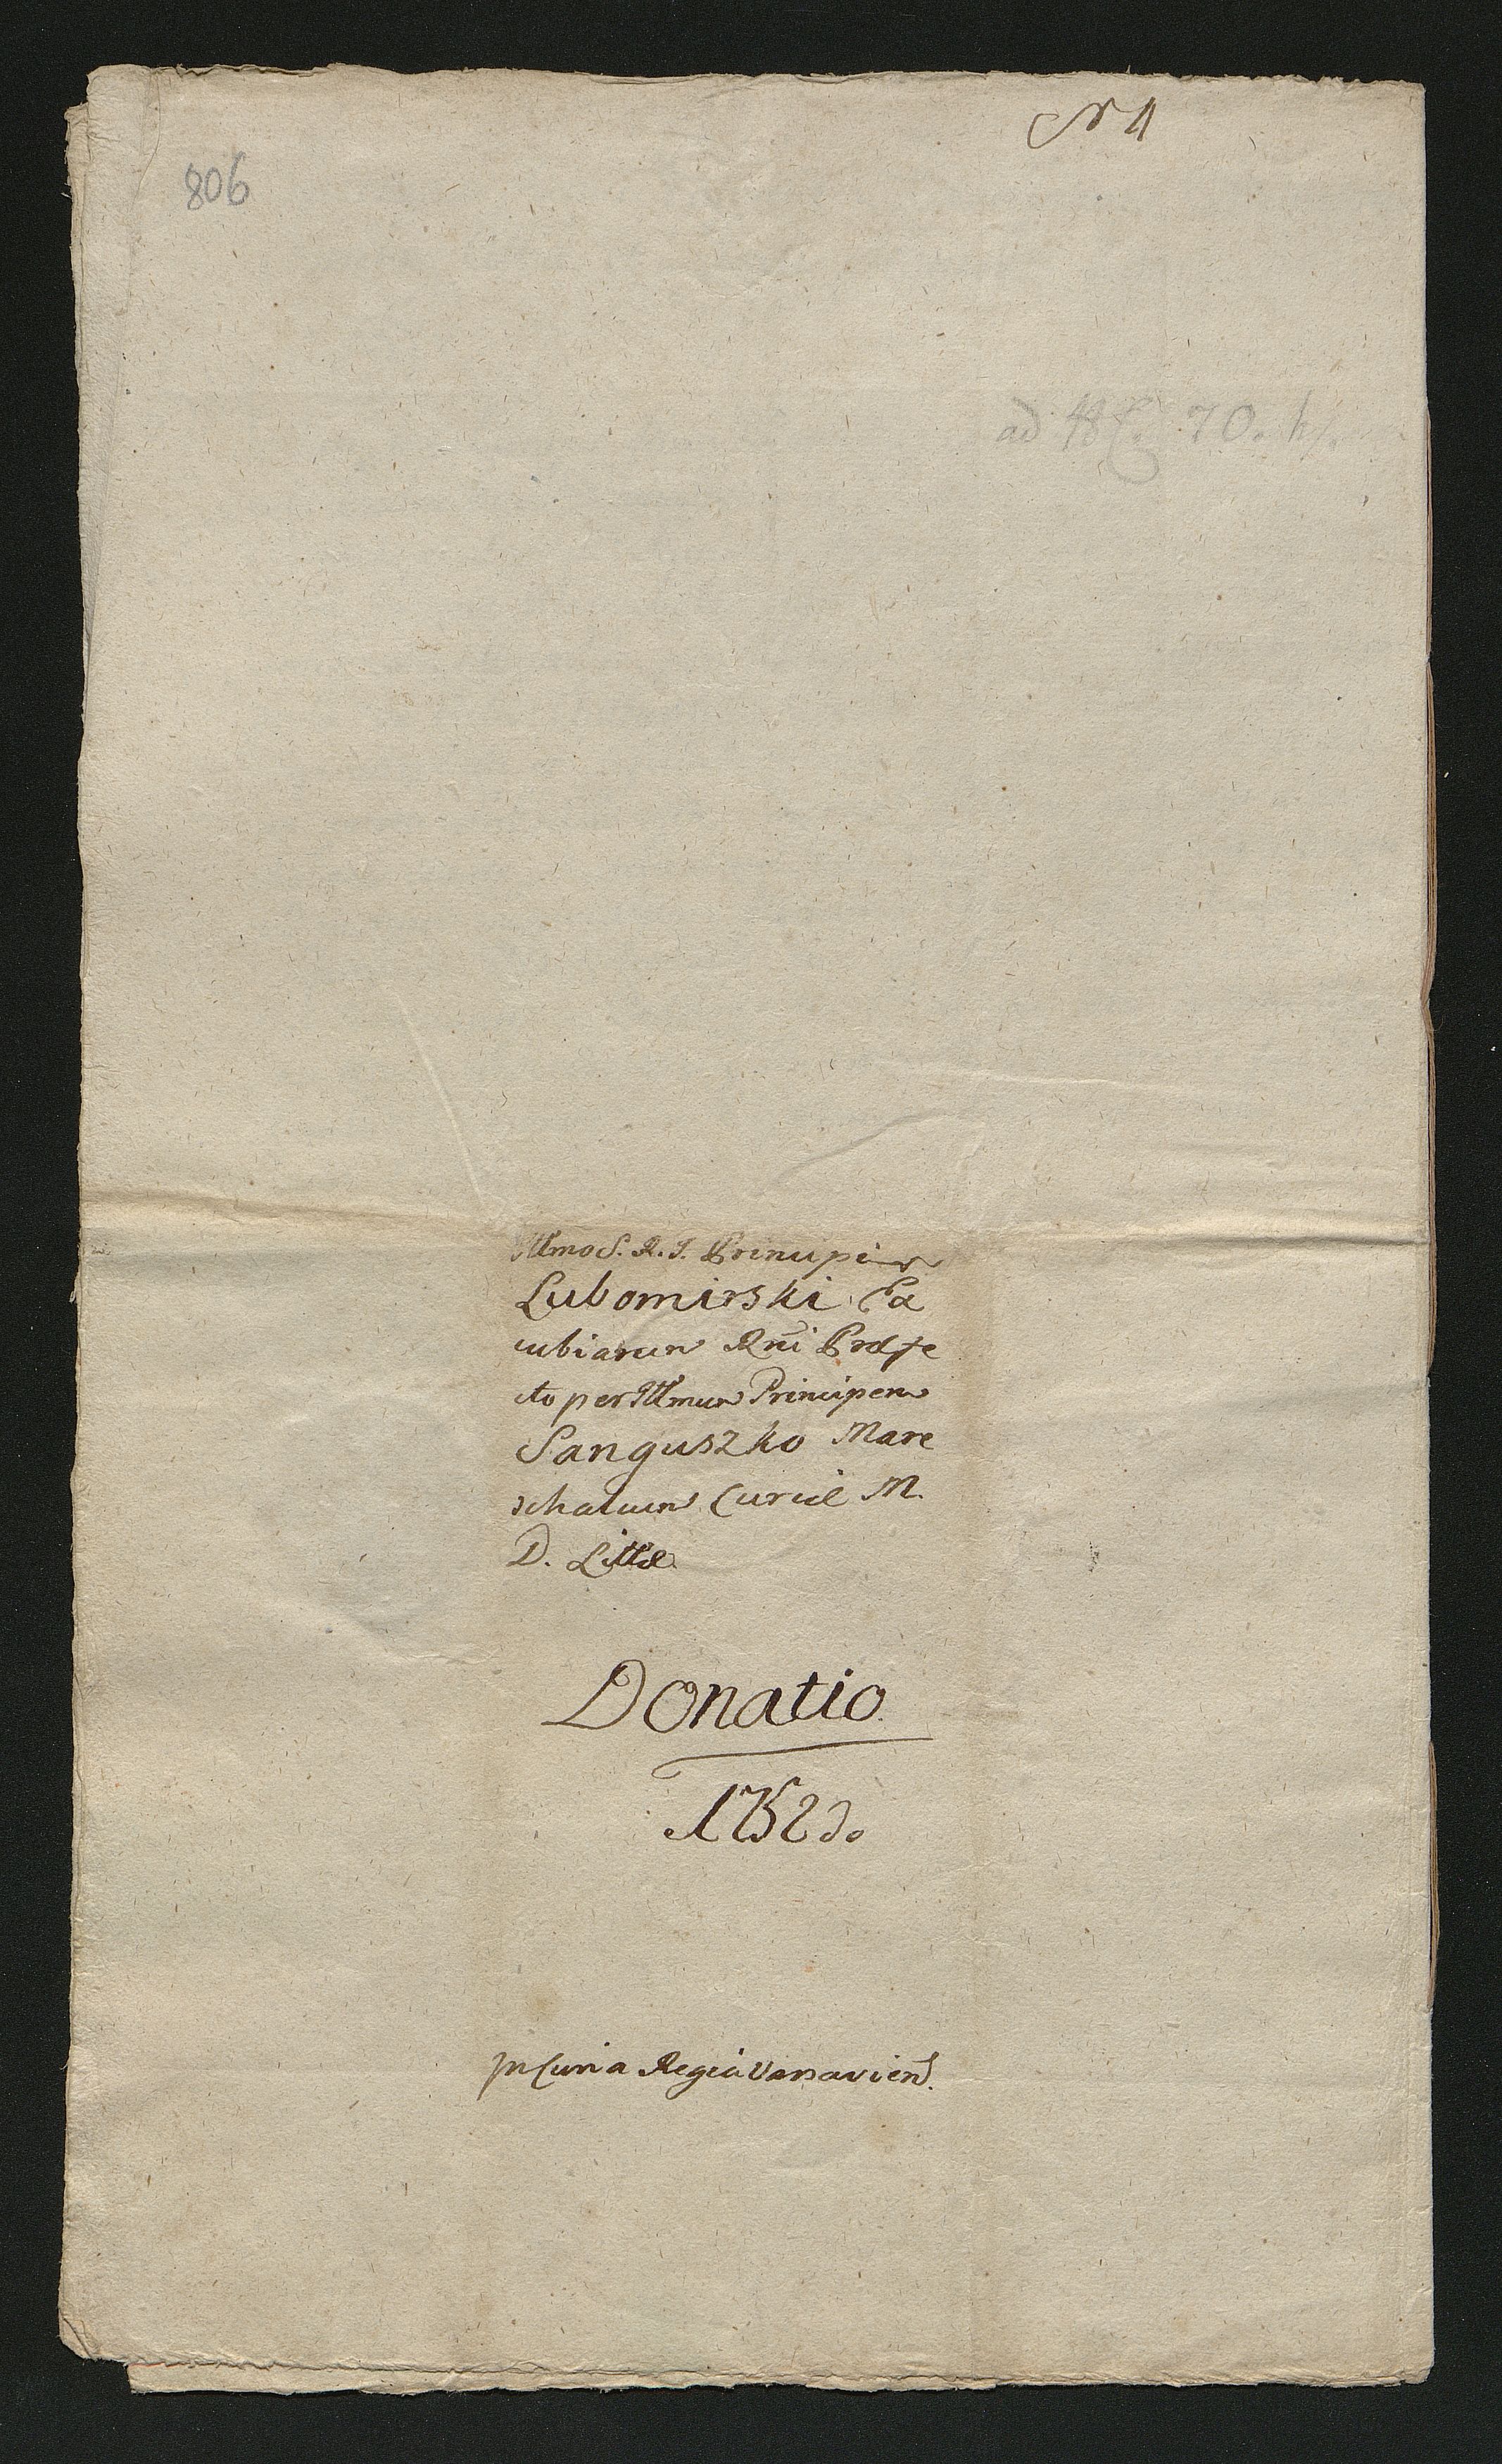 Nr 1
806
ad 48 70.
Illmo S. R. I. Principi
Lubomirski Ex
cubiarum Rni Præfe
cto per Illmum Principem
Sanguszko Mare
schalum Curiæ M.
D. Littæ
Donatio
1752do
In Curia Regia Varsavien.